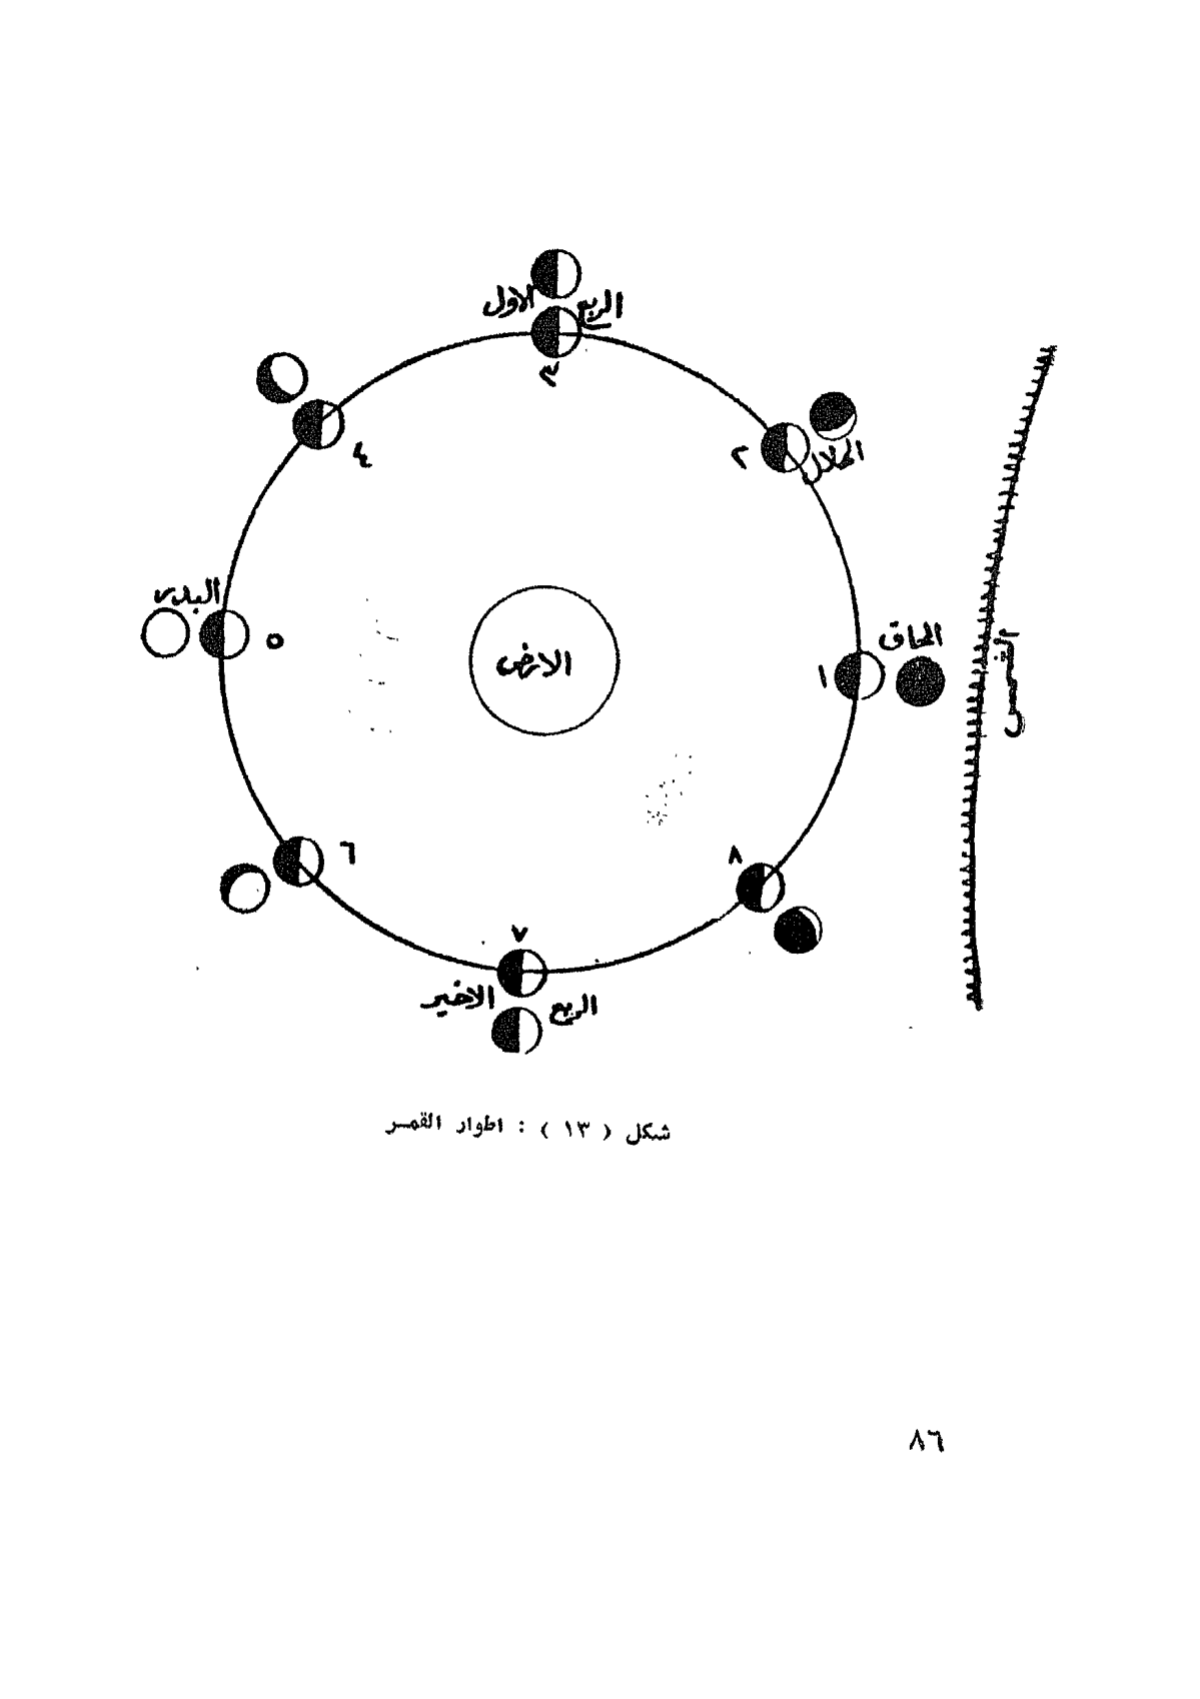 الربع الاول
٣
الهلال
٢
٤
البدر
٥
الارض
المحاق
١
الشمس
٦
٨
٧
الربع الاخير
شكل ( ١٣ ) : اطوار القمر
٨٦